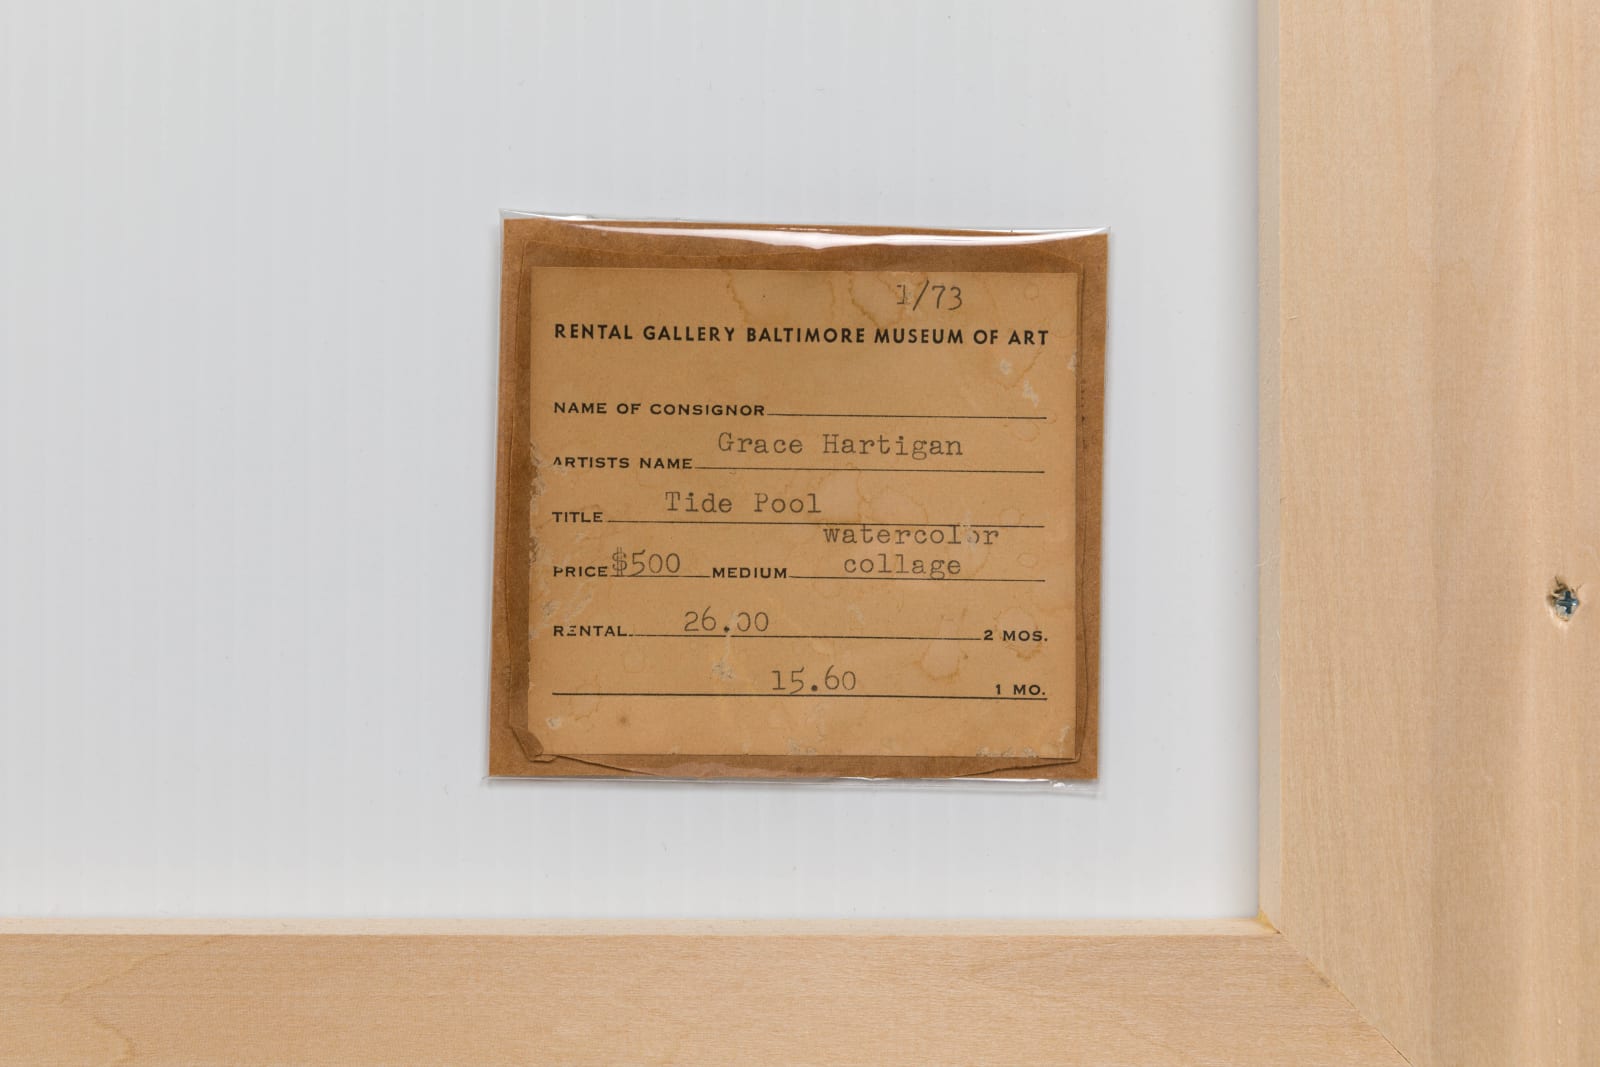 1/73
RENTAL GALLERY BALTIMORE MUSEUM OF ART
NAME OF CONSIGNOR
Grace Hartigan
ARTISTS NAME
Tide Pool
TITLE
watercolor
PRICE $500 MEDIUM collage
RENTAL 26.00 2 MOS.
15.60 1 MO.